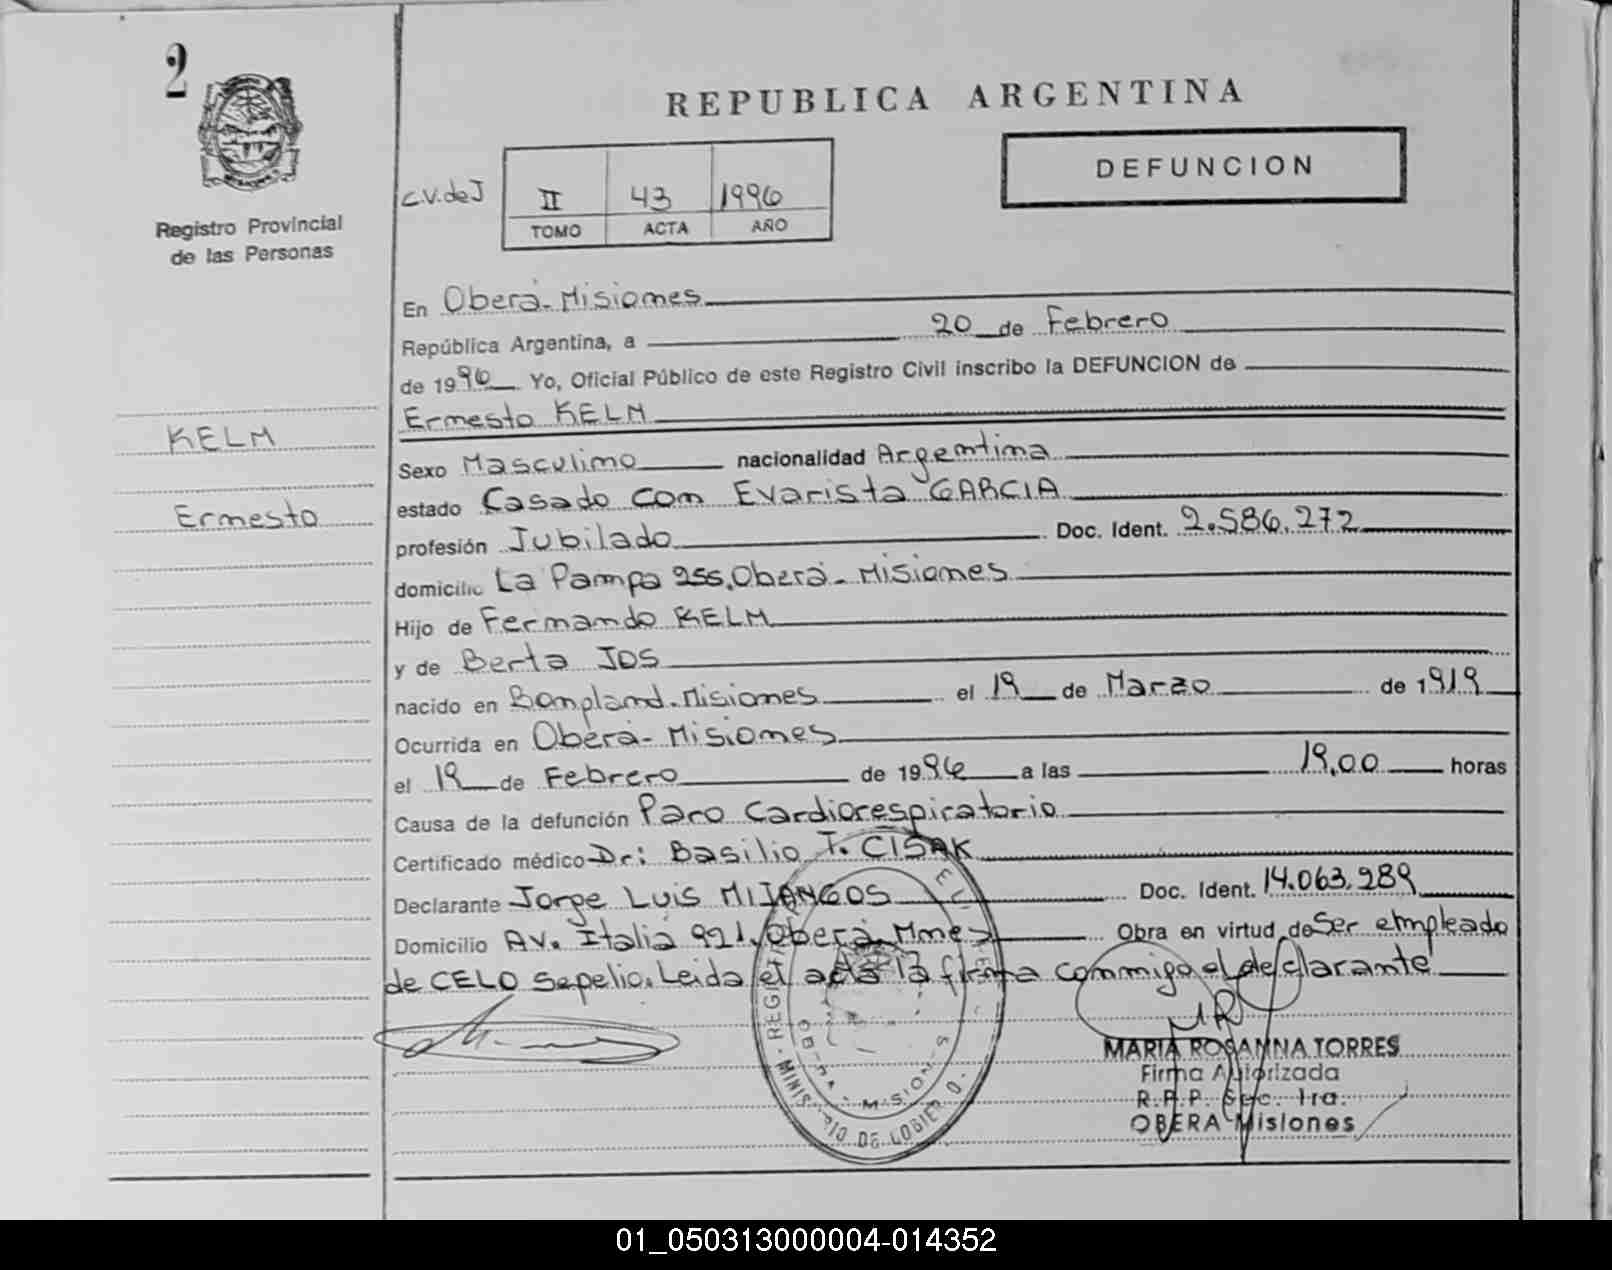 2
REPUBLICA ARGENTINA
DEFUNCION
C.V.deJ II 43 1996
TOMO ACTA AÑO
Registro Provincial
de las Personas
En Oberá-Misiones
República Argentina, a 20 de Febrero
de 1996 Yo, Oficial Público de este Registro Civil inscribo la DEFUNCION de
Ernesto KELM
KELM
Ernesto
Sexo Masculino nacionalidad Argentina
estado Casado con Evarista GARCIA
profesión Jubilado Doc. Ident. 2.586.272
domicilio La Pampa 255.Oberá-Misiones
Hijo de Fernando KELM
y de Berta JOS
nacido en Bonpland.Misiones el 19 de Marzo de 1919
Ocurrida en Oberá-Misiones
el 19 de Febrero de 1996 a las 19,00 horas
Causa de la defunción Paro Cardiorespiratorio
Certificado médico Dr: Basilio T. CISAK
Declarante Jorge Luis MIJANGOS Doc. Ident. 14.063.289
Domicilio Av. Italia 921.Oberá.Mnes Obra en virtud de Ser empleado
de CELO Sepelio. Leida el acta la firma conmigo el declarante
MARIA ROSANNA TORRES
Firma Autorizada
R.P.P. Sec. 1ra.
OBERA Misiones
MINISTERIO DE GOBIERNO
OBERA - MISIONES
01_050313000004-014352